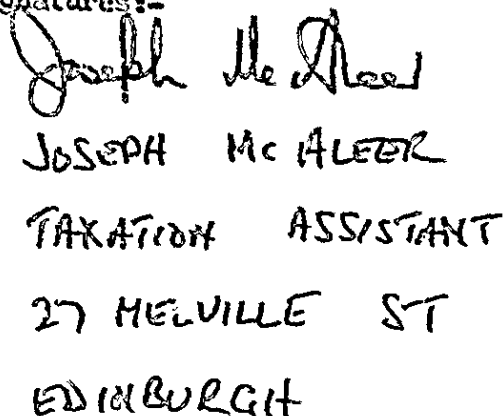 signatures:-
Joseph McAleer
JOSEPH MCALEER
TAXATION ASSISTANT
27 MELVILLE ST
EDINBURGH